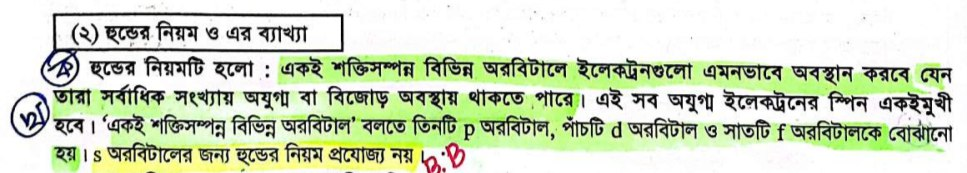 (২) হুন্ডের নিয়ম ও এর ব্যাখ্যা
হুন্ডের নিয়মটি হলো : একই শক্তিসম্পন্ন বিভিন্ন অরবিটালে ইলেকট্রনগুলো এমনভাবে অবস্থান করবে যেন
তারা সর্বাধিক সংখ্যায় অযুগ্ম বা বিজোড় অবস্থায় থাকতে পারে। এই সব অযুগ্ম ইলেকট্রনের স্পিন একইমুখী
হবে। ‘একই শক্তিসম্পন্ন বিভিন্ন অরবিটাল’ বলতে তিনটি p অরবিটাল, পাঁচটি d অরবিটাল ও সাতটি f অরবিটালকে বোঝানো
হয়। s অরবিটালের জন্য হুন্ডের নিয়ম প্রযোজ্য নয়। B.B